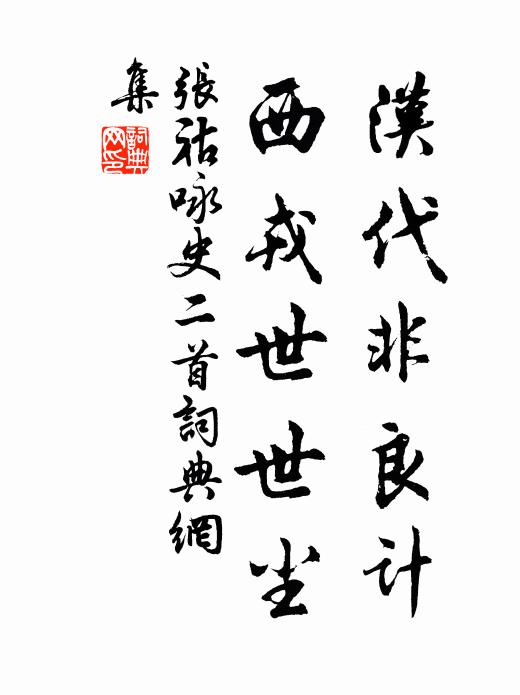 漢代非良计
西戎世世尘
張祜咏史二首詞典網
集
詞典
网印